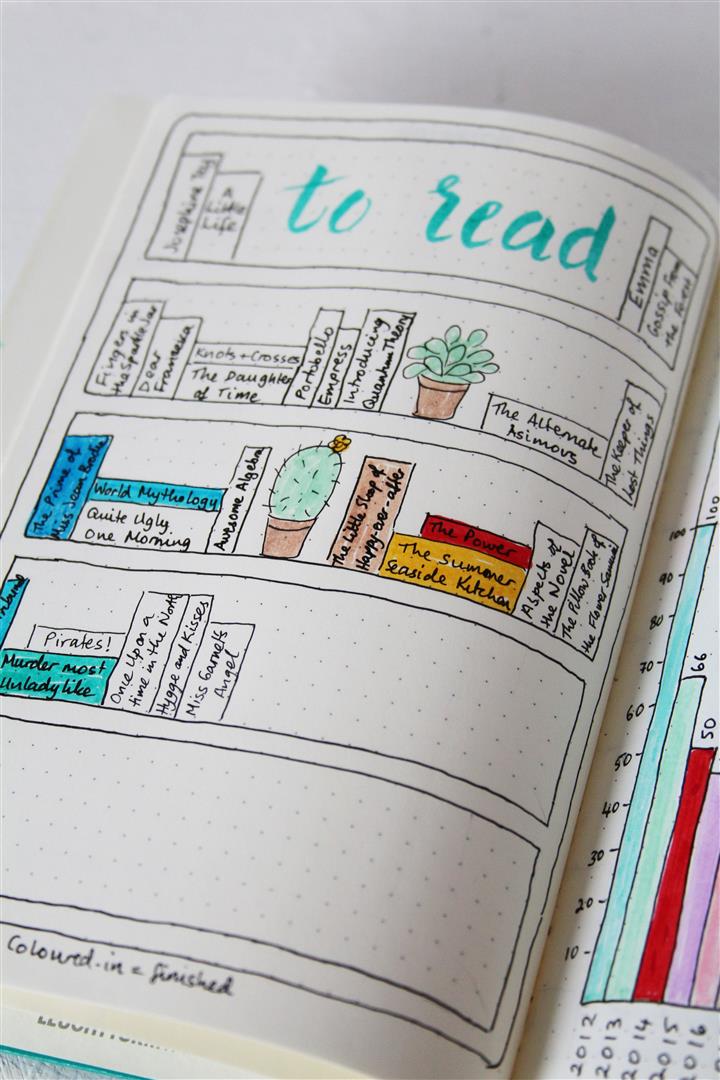 Josephine Tey
A
Little
Life
to read
Emma
Gossip From
the Forest
Fingers in
the Sparkle Jar
Dear
Francesca
Knots + Crosses
The Daughter
of Time
Portobello
Empress
Introducing
Quantum Theory
The Alternate
Asimovs
The Keeper of
Lost Things
The Prime of
Miss Jean Brodie
World Mythology
Quite Ugly
One Morning
Awesome Algebra
The Little Shop of
Happy-ever-after
The Power
The Summer
Seaside Kitchen
Aspects of
the Novel
The Pillow Book of
the Flower Samurai
Pirates!
Murder most
Unladylike
Once Upon a
time in the North
Hygge and Kisses
Miss Garnet's
Angel
Coloured-in = finished
100
100
90
80
70
66
60
50
50
40
30
20
10
2012
2013
2014
2015
2016